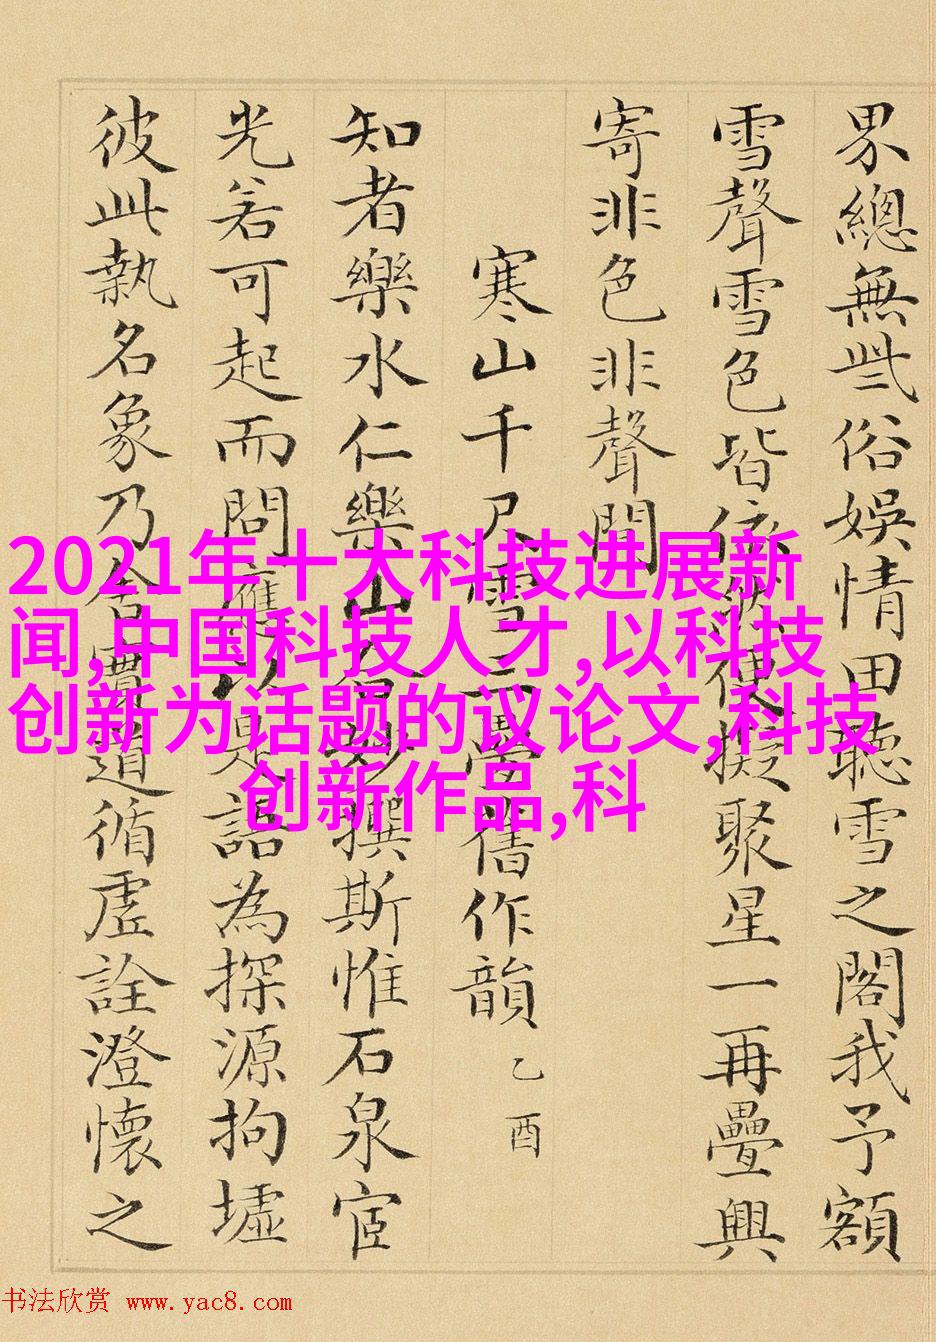 界總無些俗娛情田聽雪之閣我予額
雪聲雪色皆依然便擬聚星一再疊興
寄非色非聲間
寒山千尺雪三疊舊作韻 乙酉
知者樂水仁樂山 妙撰斯惟石泉宦
光若可起而問應以是語為探源拘墟
彼此執名象乃舍實道循虛詮澄懷之
2021年十大科技进展新
闻,中国科技人才,以科技
创新为话题的议论文,科技
创新作品,科
书法欣赏 www.yac8.com